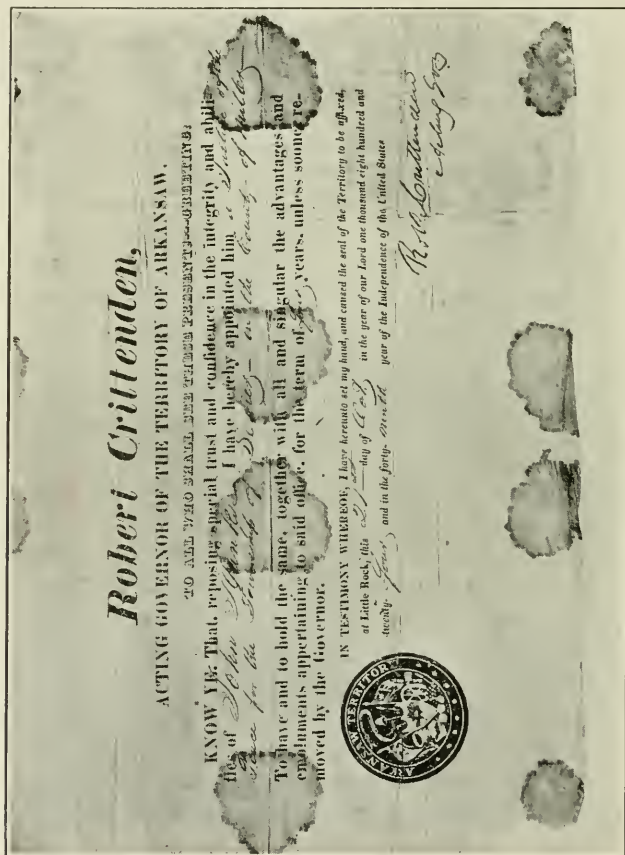 Robert Crittenden,
ACTING GOVERNOR OF THE TERRITORY OF ARKANSAW.
TO ALL WHO SHALL SEE THESE PRESENTS—GREETING:
KNOW YE: That, reposing special trust and confidence in the integrity and abili-
ties of John I have hereby appointed him a Justice of the
Peace for the Township of in the County of Miller
To have and to hold the same, together with all and singular the advantages and
emoluments appertaining to said office, for the term of years, unless sooner re-
moved by the Governor.
IN TESTIMONY WHEREOF, I have hereunto set my hand, and caused the seal of the Territory to be affixed,
at Little Rock, this day of in the year of our Lord one thousand eight hundred and
twenty- four, and in the forty- ninth year of the Independence of the United States
Crittenden
Acting Gov
ARKANSAW TERRITORY